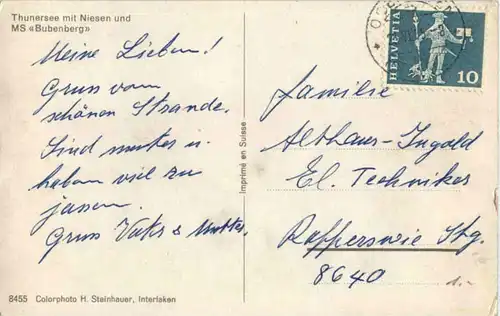 Thunersee mit Niesen und
MS «Bubenberg»
Meine Lieben!
Gruss vom
schönen Strande.
Sind munter u.
haben viel zu
jassen.
Gruss Vater & Mutter.
8455 Colorphoto H. Steinhauer, Interlaken
Imprimé en Suisse
HELVETIA
10
Familie
Althaus-Ingold
El. Techniker
Rapperswil Stg.
8640